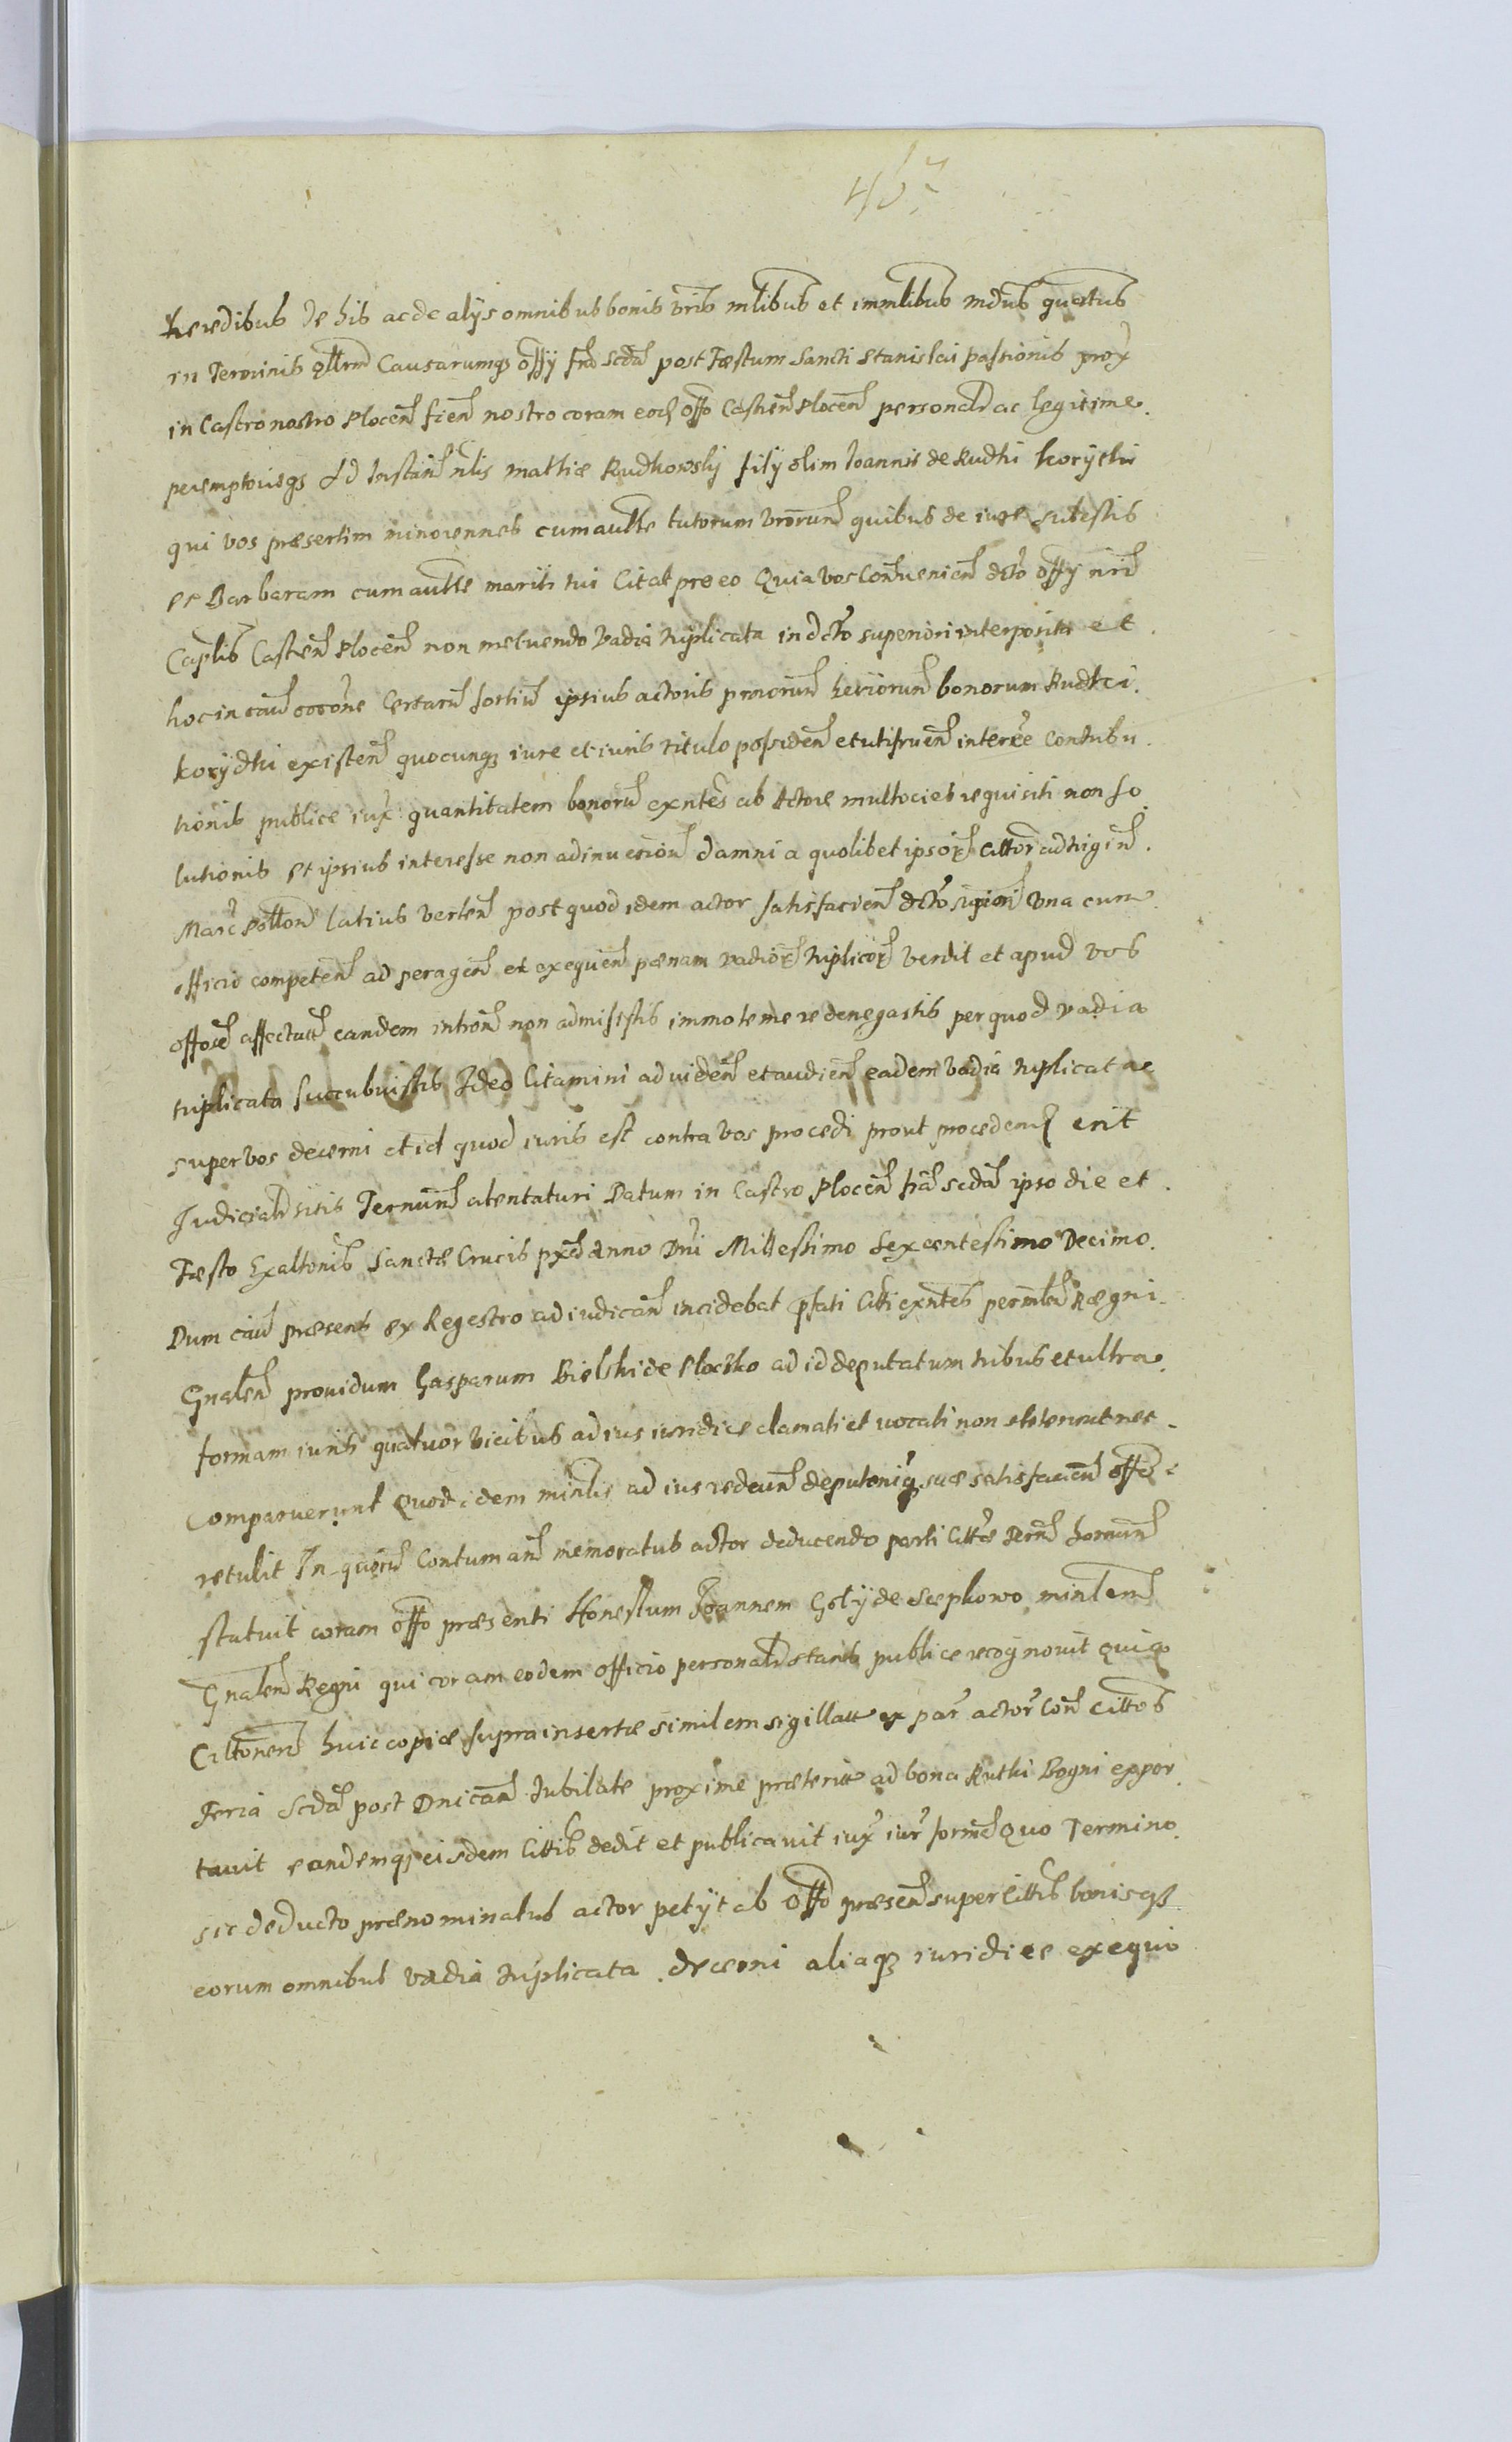 467
heredibus de his ac de alijs omnibus bonis vris mlibus et immlibus mdus quatus
in Terminis qllrm Causarumq offij fria Scda post Fæstum Sancti Stanislai passionis prox
in Castro nostro Plocen fien nostro coram eod offo Castren Plocen personalr ac legitime
peremptorieqs Ad Instan nlis Mathiæ Rudkowskj filij olim Joannis de Rudki korijthi
qui vos præsertim minorennes cum autte tutorum vrorum quibus de iure subestis
et Barbaram cum autte mariti tui Citat pro eo Quia vos Conuenien dcto offij nri
Caplis Castren Plocen non metuendo Vadia triplicata in dcto superiori interposita et
hoc in cau cocone Certarum sortiu ipsius actoris proiorum herijorum bonorum Rudki
korijdki existen quocunq iure et iuris titulo possiden et utifruen interee Contribu
tionis publice iux quantitatem bonoru exntes ab Actore multocies requisiti non so
lutionis et ipsius interesse non adinuecion damni a quolibet ipsor citator ad triginta
Marc Pollon latius verten post quod idem actor satisfacien dcto supiori vna cum
officio competen ad peragen et exequen pænam vadior triplicor venit et apud vos
offose affectatt eandem introm non admisistis immo temere denegastis per quod vadia
triplicata succubuistis Ideo Citamini ad viden et audien eadem Vadia triplicatae
super vos decerni et id quod iuris est contra vos procedi prout proceden erit
Judicialr sitis Terminum atentaturi Datum in Castro Plocen fria scda ipso die et
Fæsto Exaltonis Sanctæ Crucis pxd Anno Dni Millessimo Sexcentessimo Decimo
Dum cau præsens ex Regestro ad iudican incidebat pfati Citti exntes per mlem Rægni
Gnalem prouidum Gasparum Bielski de Plocsko ad id deputatum tribus et ultra
formam iuris quatuor vicibus ad ius iuridice clamati et vocati non steterunt nec
Comparuerunt Quod idem minlis ad ius redeun deputoniq suæ satisfacien offose
retulit In quoru Contuman memoratus actor deducendo parti Cittæ Tern hornum
statuit coram offo præsenti Honestum Joannem Golij de Sæpkowo minlem
Gnalem Regni qui coram eodem officio personalr stans publice recognouit Quia
Cittonem huic copiæ supra insertæ similem sigillatt ex par actor Con Cittos
Feria Scda post Dnicam Jubilate proxime præteritt ad bona Rutki Bogni expor
tauit eandemq eisdem Cittis dedit et publicauit iux iur forma Quo Termino
sic deducto prænominatus actor petijt ab Offo præsen super Cittis bonisq
eorum omnibus vadia triplicata decerni aliaq iuridice exequi